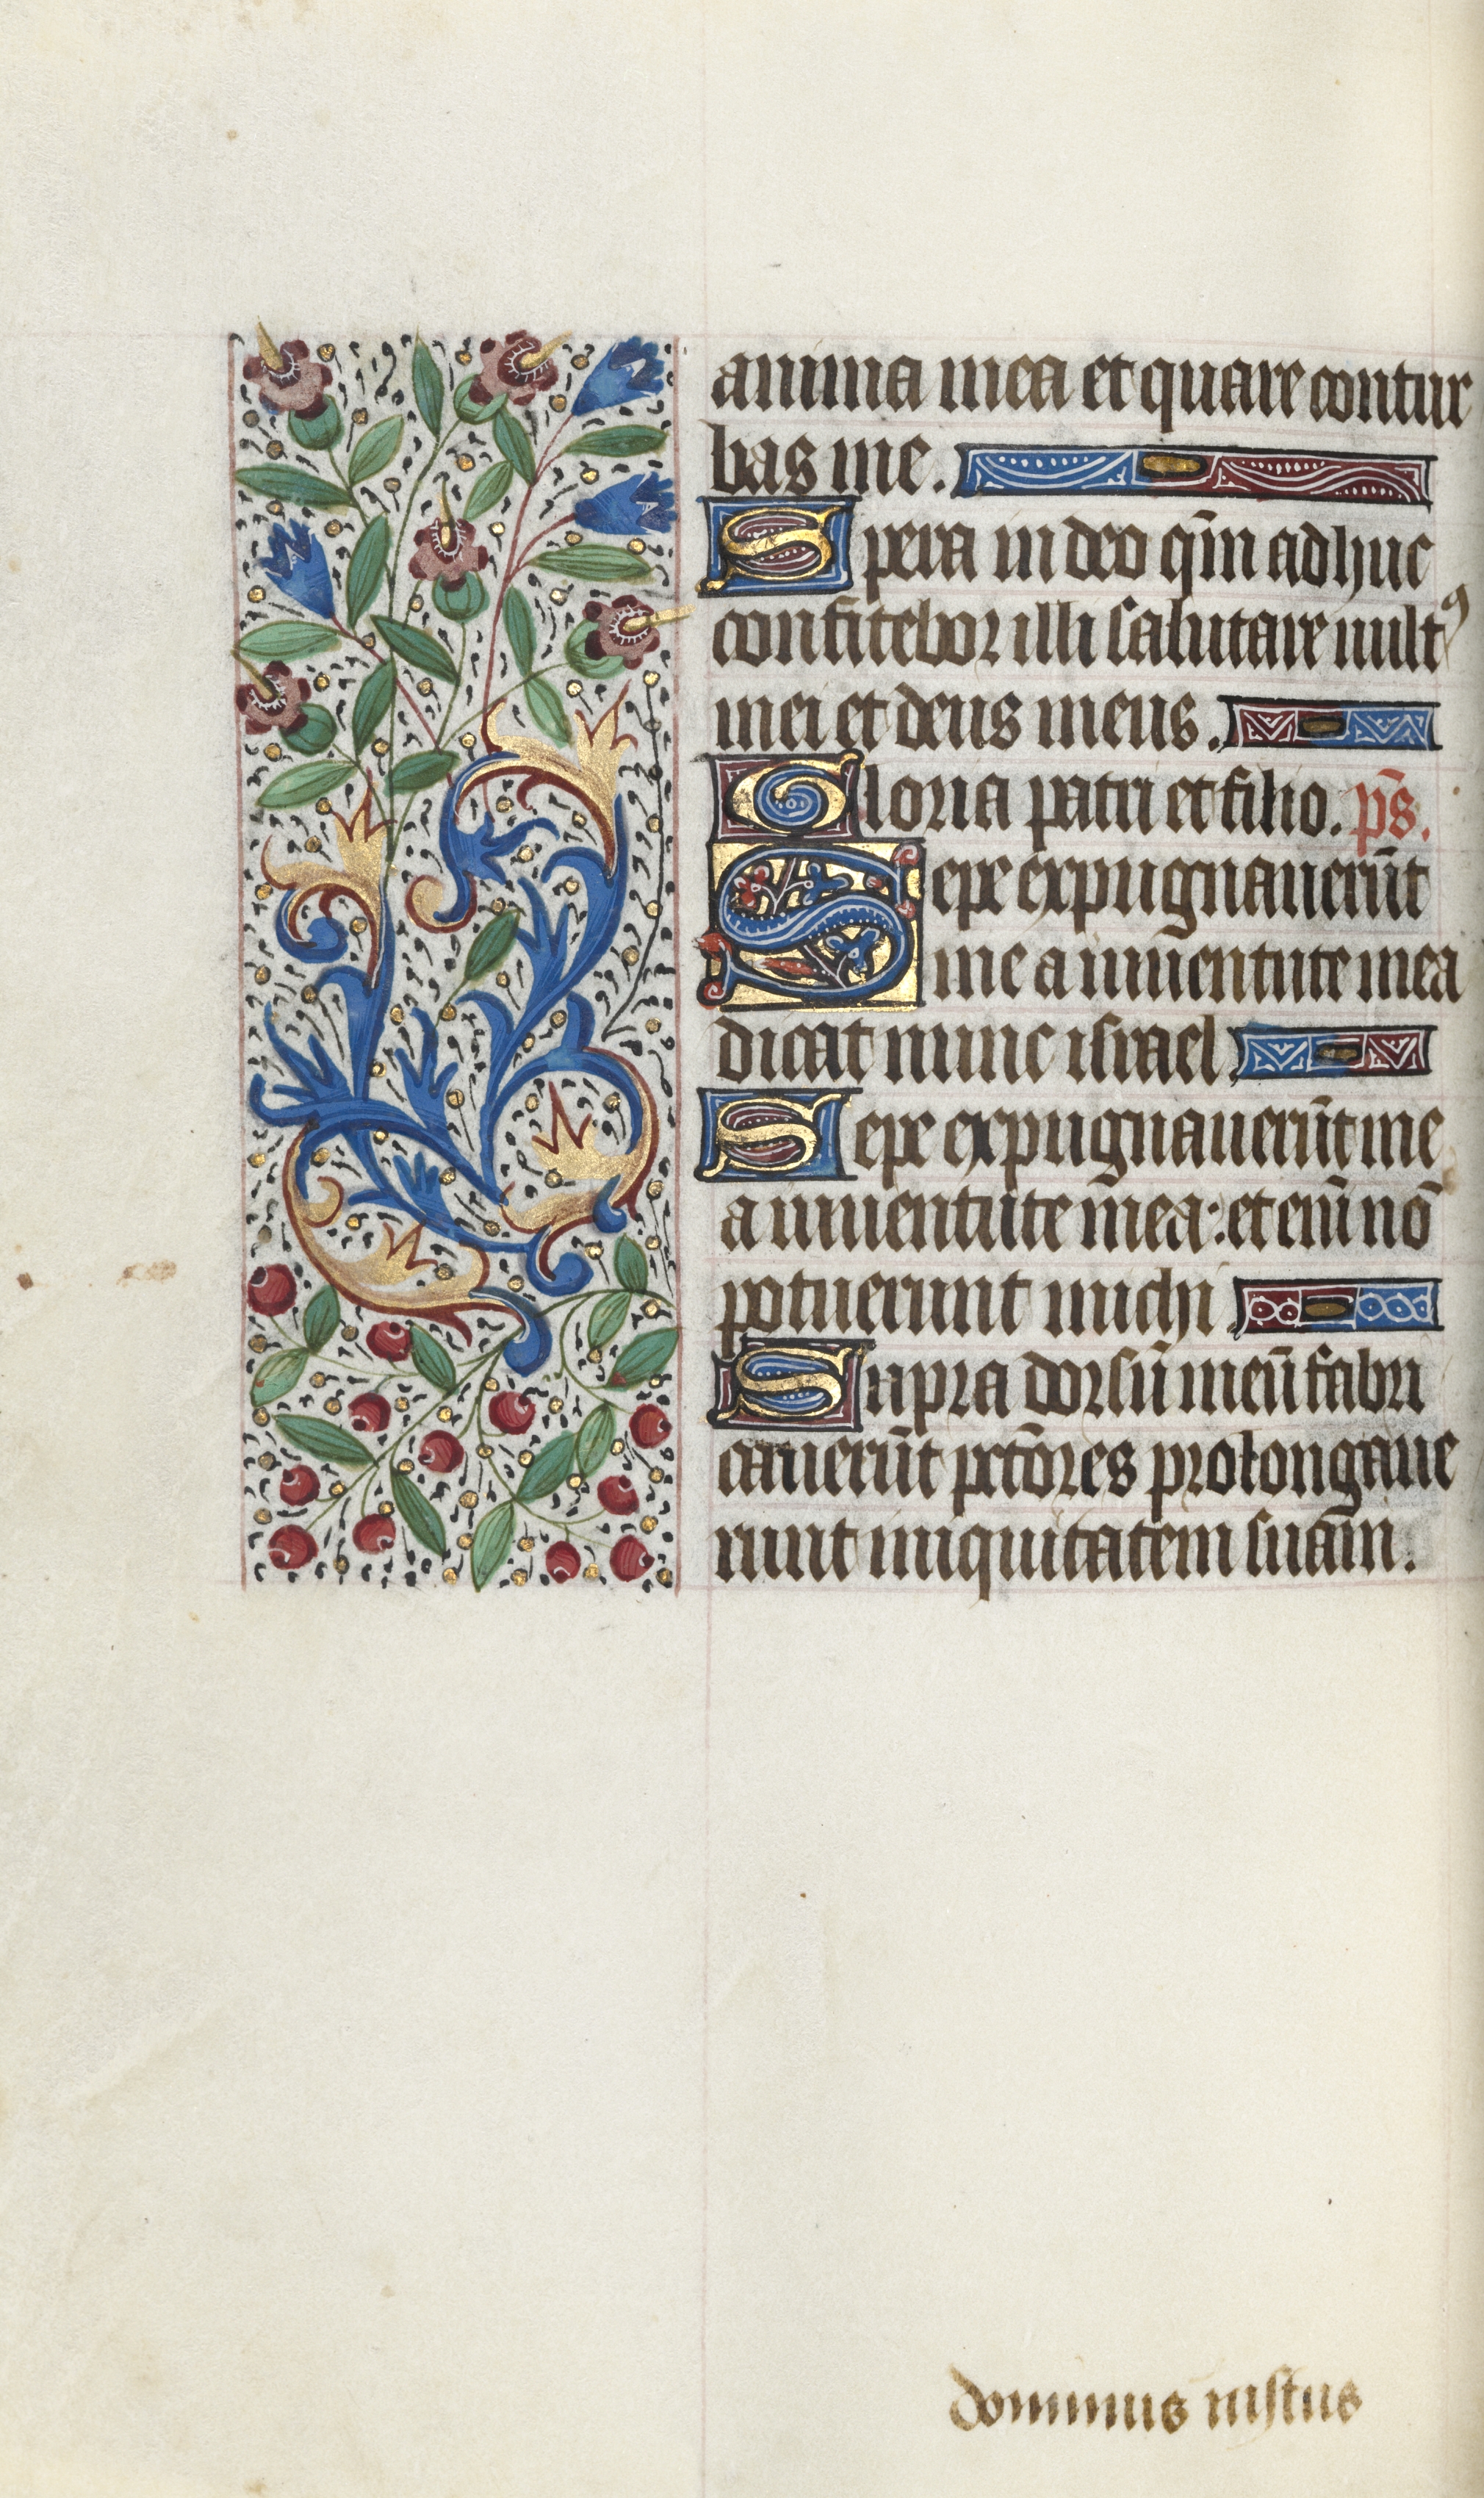 anima mea et quare contur
bas me.
Spera in deo qm̄ adhuc
confitebor illi salutare vultꝰ
mei et deus meus.
Gloria patri et filio. ps̄.
Sepe expugnauerūt
me a iuuentute mea
dicat nunc israel
Sepe expugnauerūt me
a iuuentute m̄ea: et eni᷑ nō
potuerunt michi
Supra dorsū meū fabri
cauerūt pctōres prolongaue
runt iniquitatem suam̄.
dominus iustus